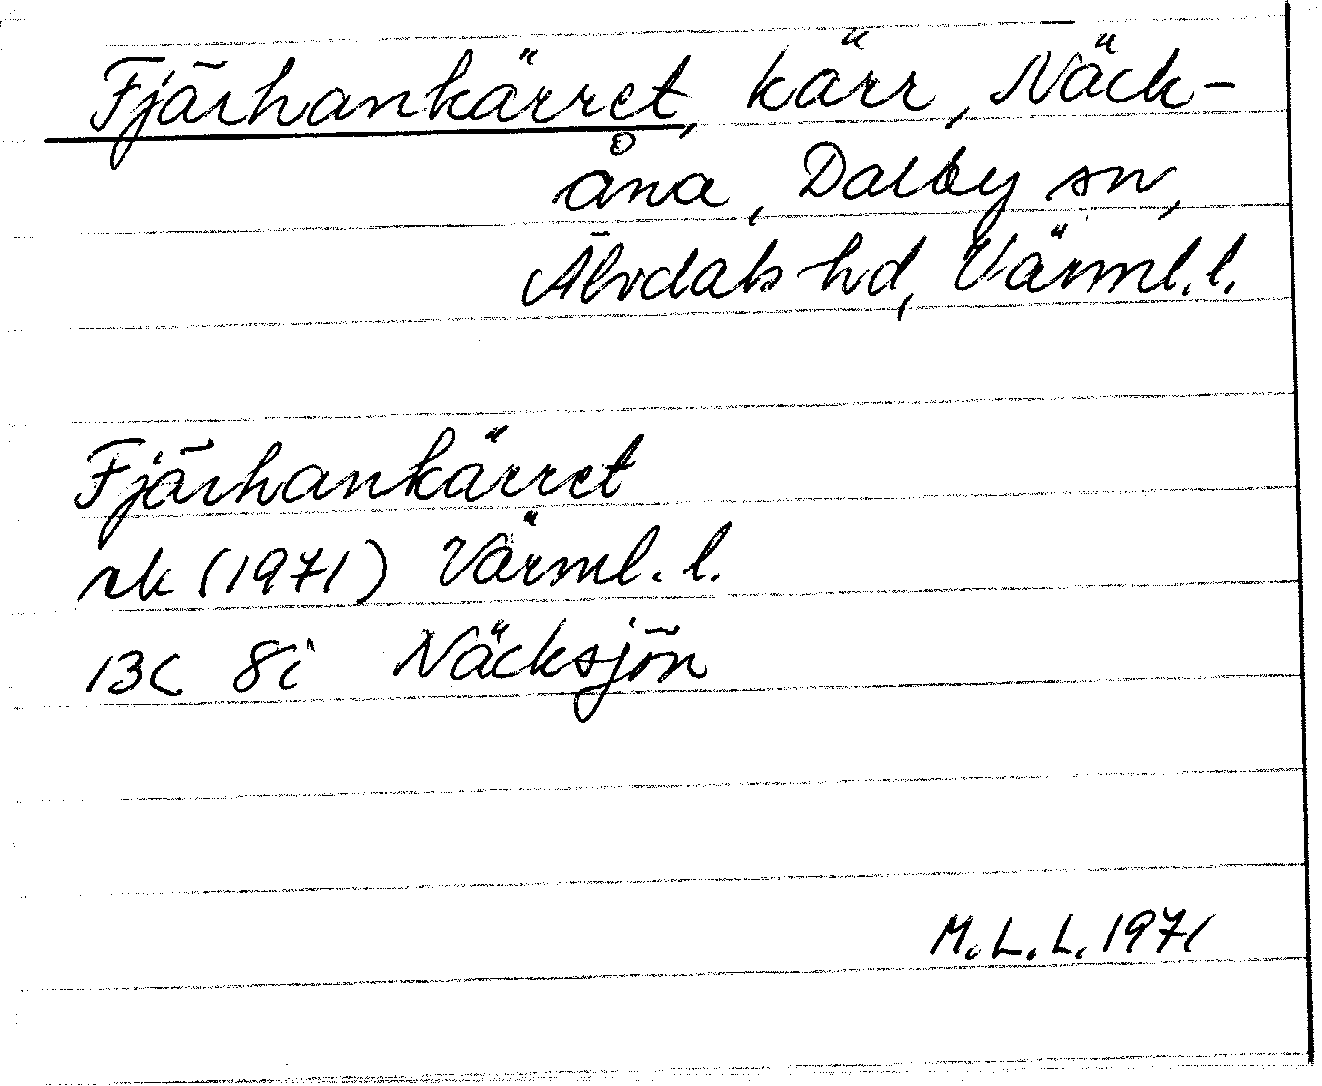 Fjärhankärret, kärr, Näck-
åna, Dalby sn,
Älvdals hd, Värml. l.
Fjärhankärret
rk (1971) Värml. l.
13C 8i Näcksjön
M. L. L. 1971